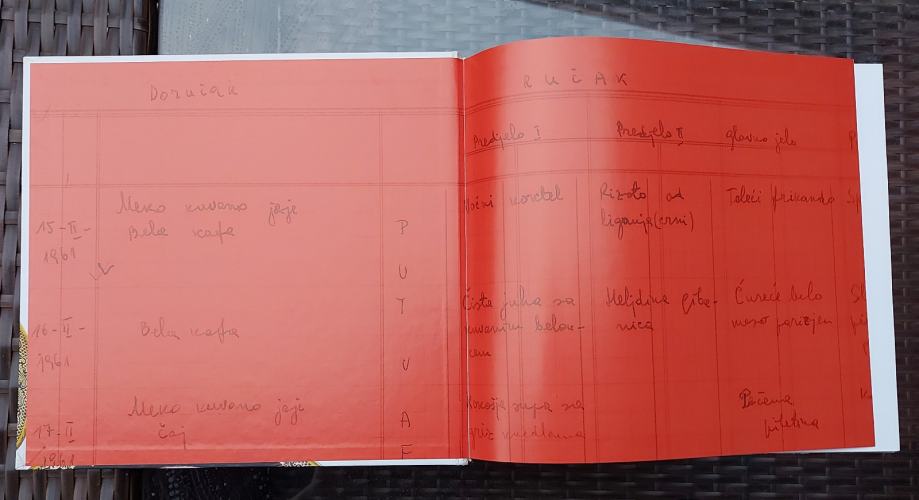 Doručak
RUČAK
Predjelo I Predjelo II glavno jelo
15-II-
1961
Meko kuvano jaje
Bela kafa
P
U
T
U
A
Voćni koktel
Rizoto od
liganja (crni)
Teleći frikando
16-II-
1961
Bela kafa
Čista juha sa
kuvanim belan-
cem
Heljdina giba-
nica
Ćureće belo
meso parizjen
17-II
1961
Meko kuvano jaje
čaj
Kokošja supa sa
griz knedlama
Pečena
piletina